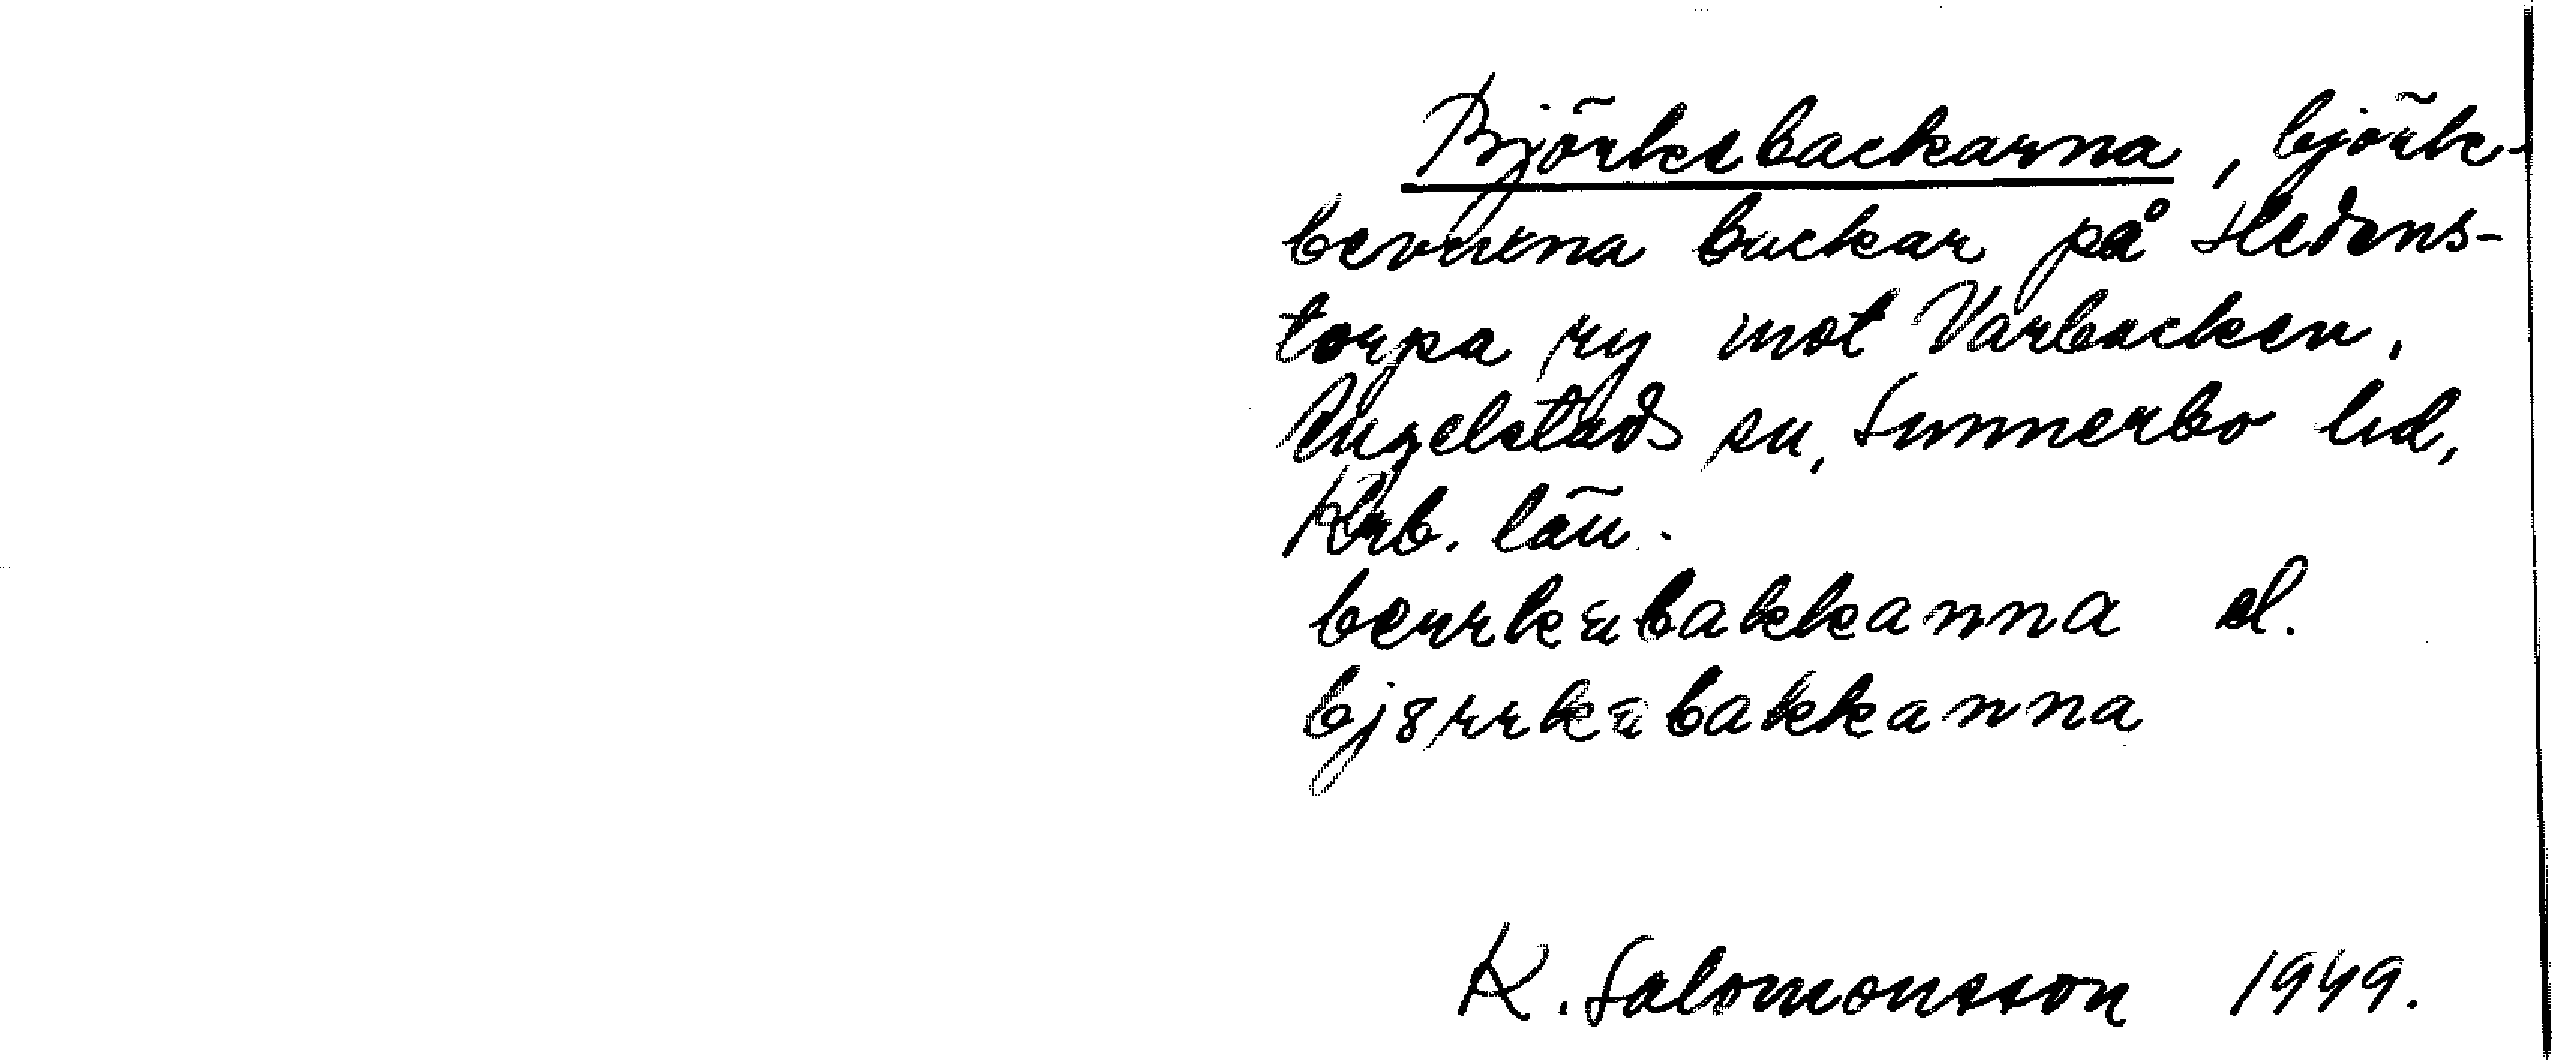 Björkebackarna, björk-
bevuxna backar på Hedens-
torpa ry mot Varbacken,
Angelstads sn, Sunnerbo hd,
Krb. län.
berrkabakkanna el.
bjørrkabakkanna
K. Salomonsson 1949.